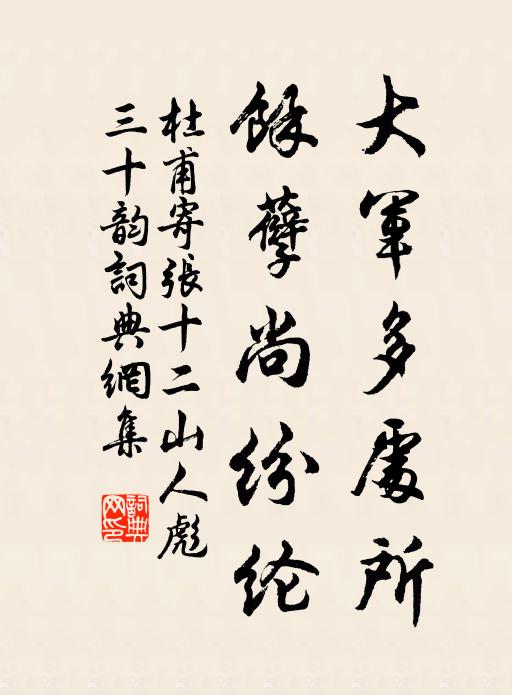 大軍多處所
餘孽尚紛纶
杜甫寄張十二山人彪
三十韵詞典網集
詞典网印